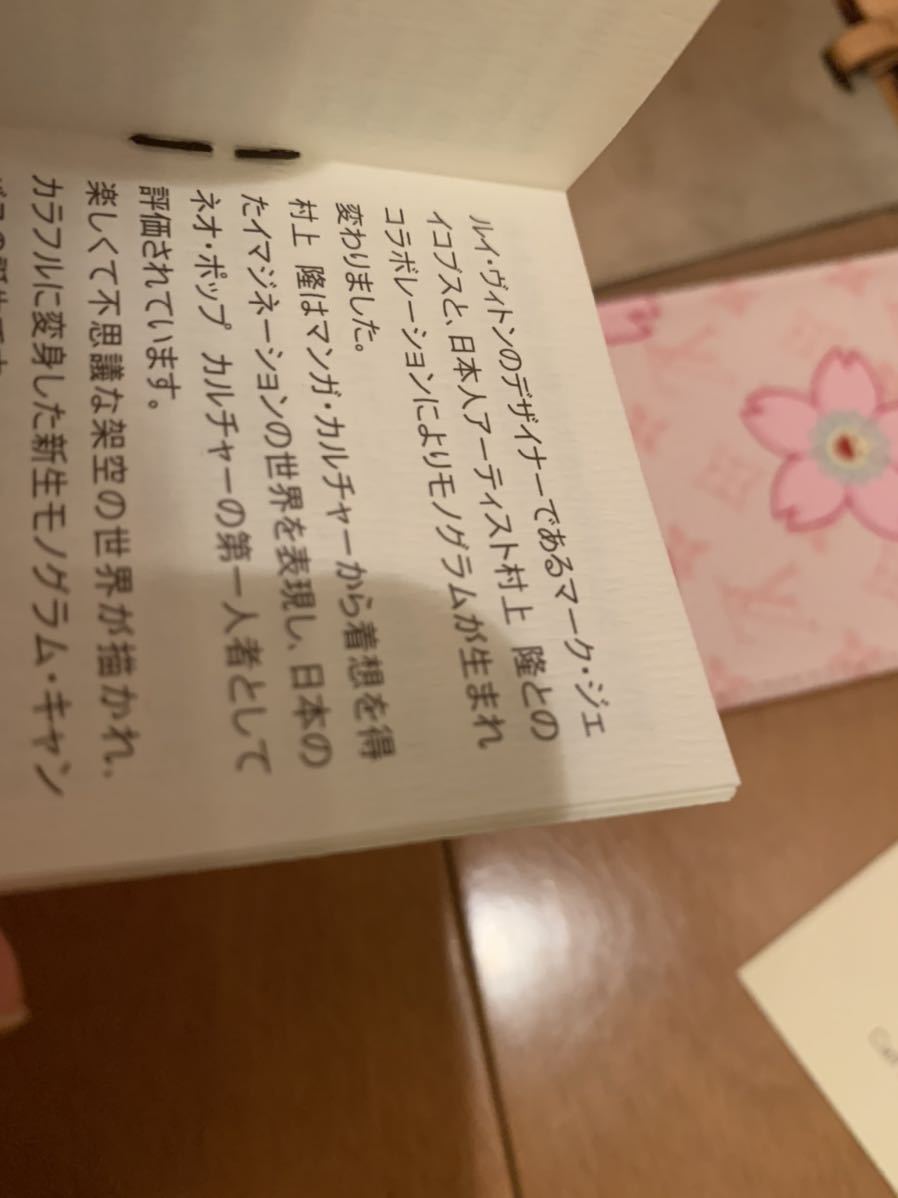 ルイ・ヴィトンのデザイナーであるマーク・ジェ
イコブスと、日本人アーティスト村上　隆との
コラボレーションによりモノグラムが生まれ
変わりました。
村上　隆はマンガ・カルチャーから着想を得
たイマジネーションの世界を表現し、日本の
ネオ・ポップ　カルチャーの第一人者として
評価されています。
楽しくて不思議な架空の世界が描かれ、
カラフルに変身した新生モノグラム・キャン